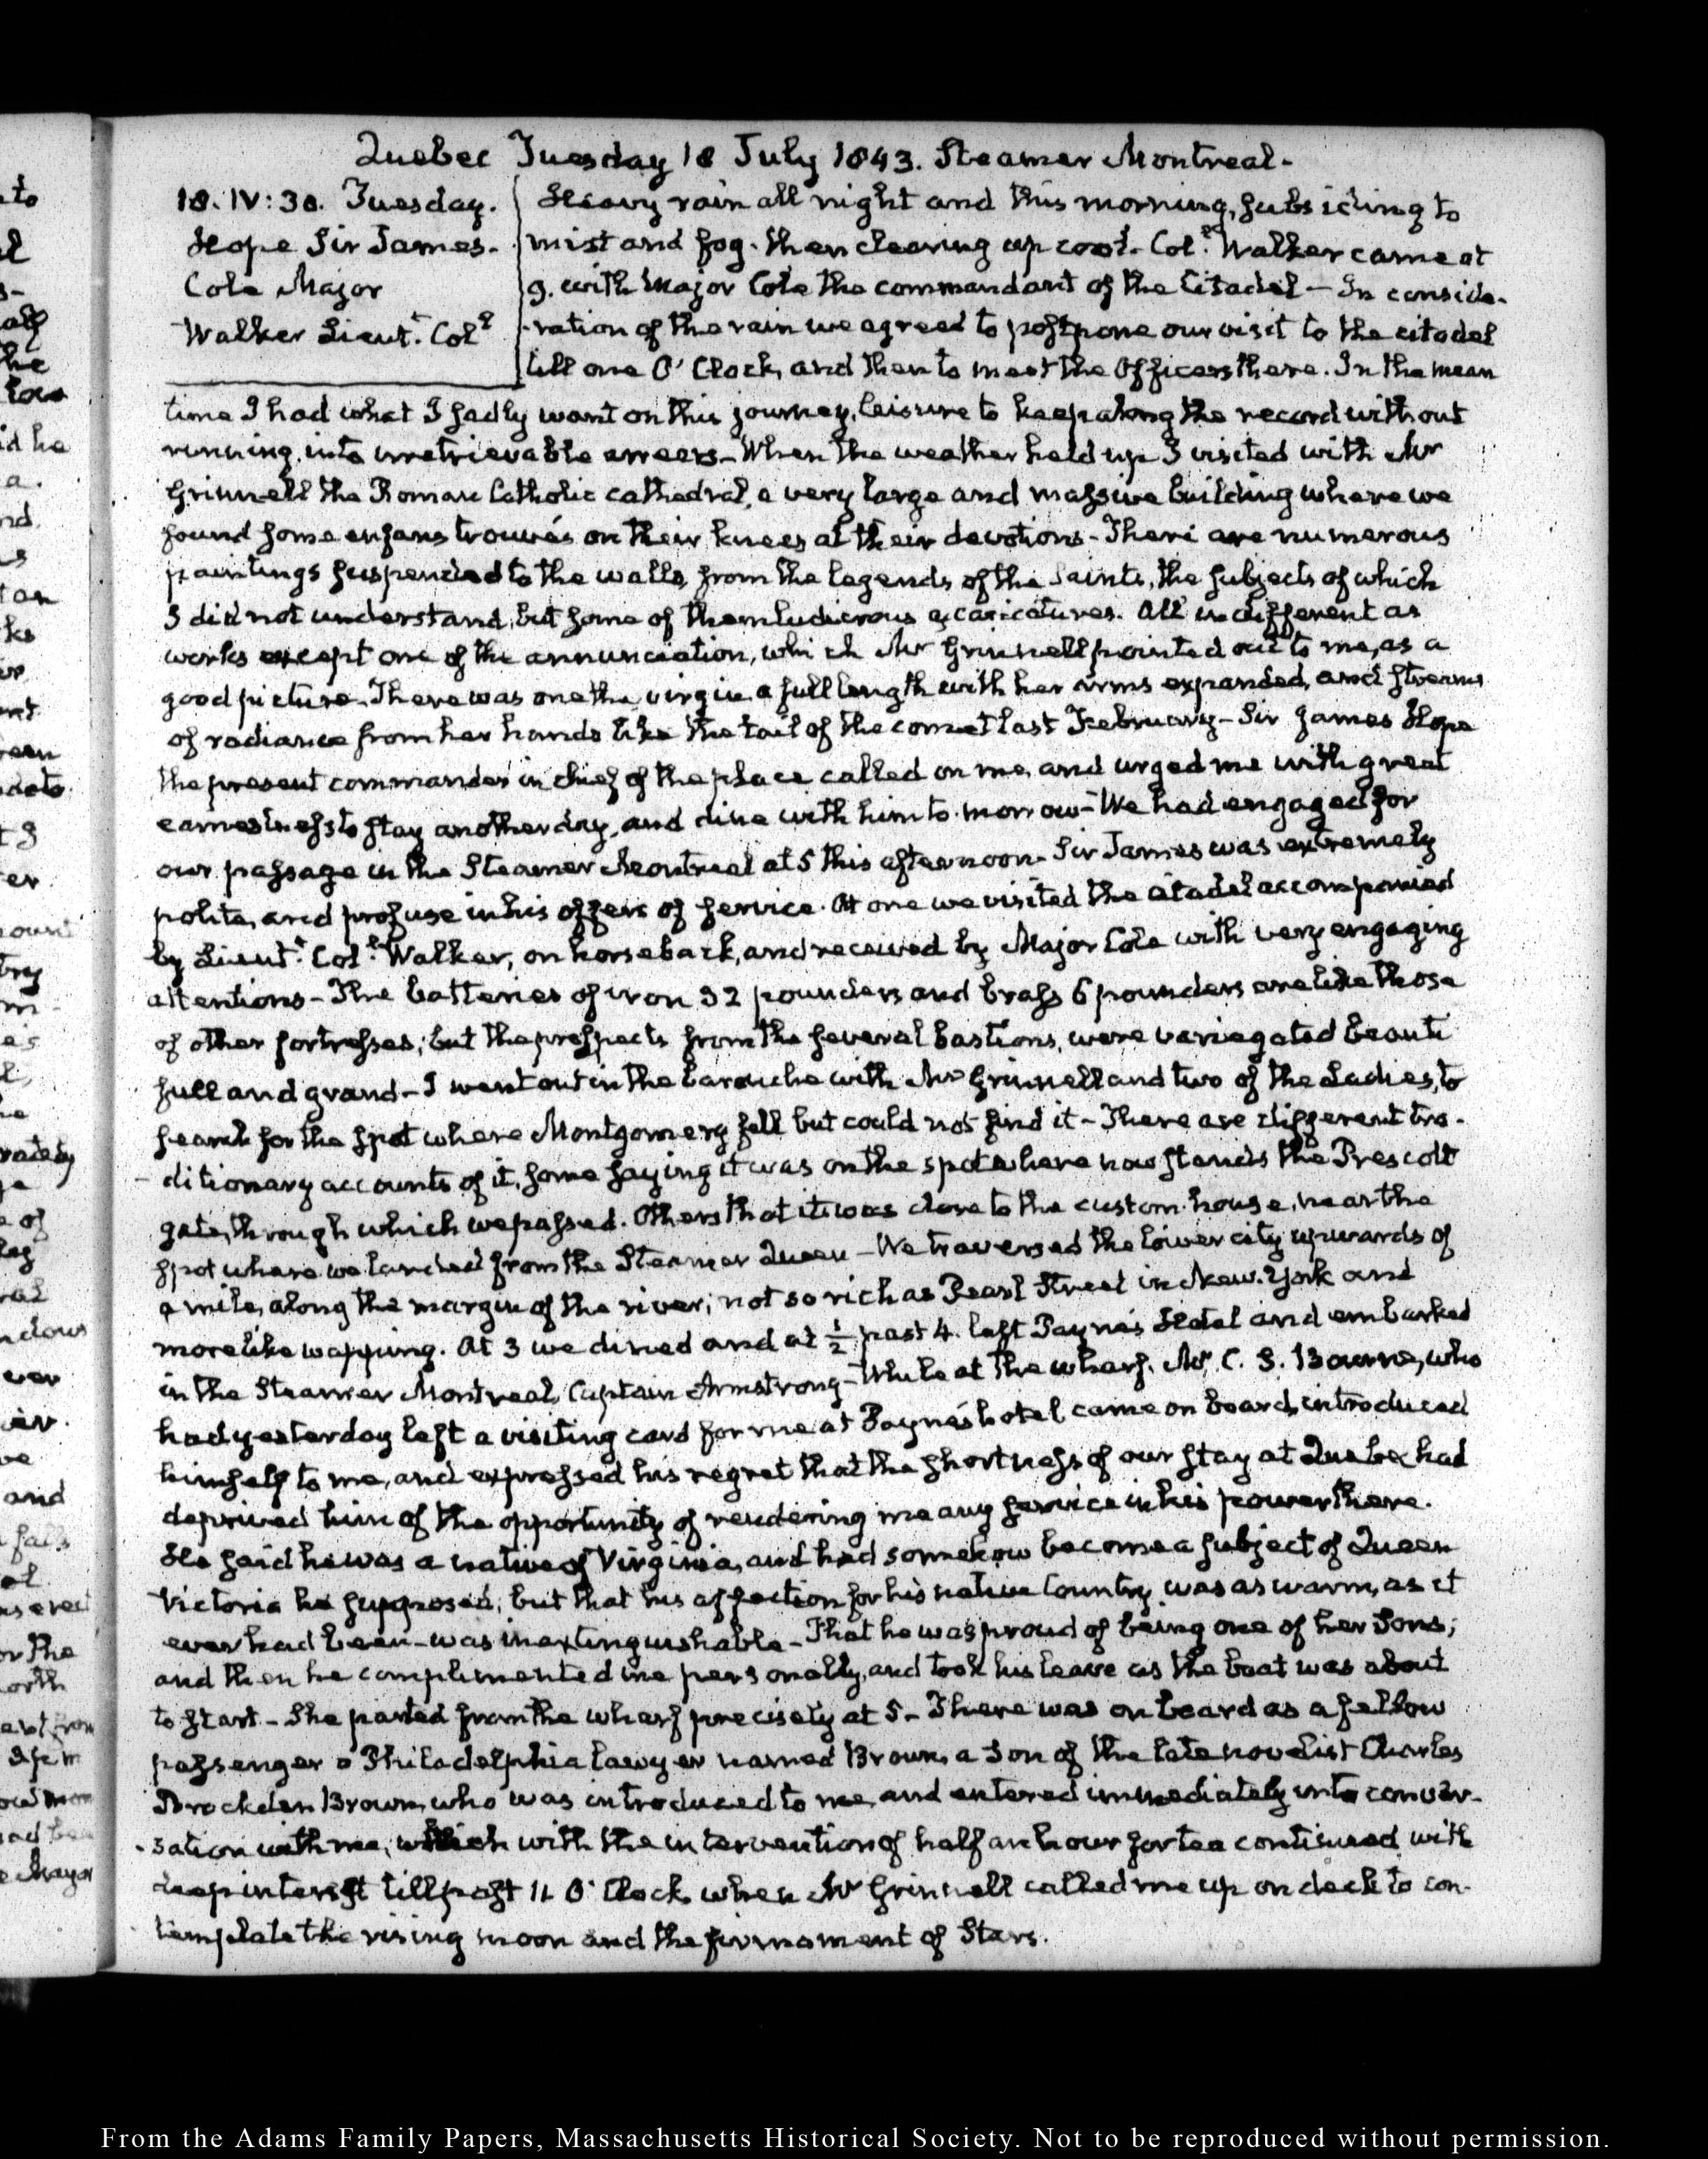 Quebec Tuesday 18 July 1843. Steamer Montreal-
18. IV: 30. Tuesday.
Hope Sir James-
Cole Major
Walker Lieut.t Coll
Heavy rain all night and this morning, subsiding to
mist and fog. then clearing up cool. Col.l Walker came at
9. with Major Cole the commandant of the Citadel — In conside-
-ration of the rain we agreed to postpone our visit to the citadel
till one O' Clock, and then to meet the Officers there. In the mean
time I had what I sadly want on this journey, leisure to keep along the record without
running into irretrievable arrears- When the weather held up I visited with Mr
Grinnell the Roman Catholic cathedral, a very large and massive building where we
found some enfans trouvés on their knees at their devotions- There are numerous
paintings suspended to the walls, from the legends of the Saints, the subjects of which
I did not understand, but some of them ludicrous caricatures. All indifferent as
works except one of the annunciation, which Mr Grinnell pointed out to me, as a
good picture. There was one the virgin a full length with her arms expanded, and streams
of radiance from her hands like the tail of the comet last February- Sir James Hope
the present commander in chief of the place called on me, and urged me with great
earnestness to stay another day, and dine with him to-morrow- We had engaged for
our passage in the Steamer Montreal at 5 this afternoon- Sir James was extremely
polite, and profuse in his offers of service. At one we visited the citadel accompanied
by Lieut.t Col.l Walker, on horseback, and received by Major Cole with very engaging
attentions- The batteries of iron 32 pounders and brass 6 pounders are like those
of other fortresses; but the prospects from the several bastions, were variegated beauti
full and grand- I went out in the barouche with Mr Grinnell and two of the Ladies, to
search for the spot where Montgomery fell but could not find it- There are different tra-
-ditionary accounts of it, some saying it was on the spot where now stands the Prescott
gate, through which we passed. Others that it was close to the custom-house, near the
spot where we landed from the Steamer Queen- We traversed the lower city upwards of
a mile, along the margin of the river; not so rich as Pearl Street in New-York and
more like wapping. At 3 we dined and at ½ past 4. left Payne's Hotel and embarked
in the Steamer Montreal, Captain Armstrong- While at the wharf. Mr. C. S. Bourne, who
had yesterday left a visiting card for me at Payne's hotel came on board, introduced
himself to me, and expressed his regret that the shortness of our stay at Quebec had
deprived him of the opportunity of rendering me any service in his power there.
He said he was a native of Virginia, and had somehow become a subject of Queen
Victoria he supposed; but that his affection for his native Country, was as warm, as it
ever had been- was inextinguishable- That he was proud of being one of her Sons;
and then he complimented me personally, and took his leave as the boat was about
to start- She parted from the wharf precisely at 5- There was on board as a fellow
passenger a Philadelphia lawyer named Brown, a Son of the late novelist Charles
Brockden Brown, who was introduced to me, and entered immediately into conver-
-sation with me, which with the intervention of half an hour for tea continued with
deep interest till past 11 O' Clock, when Mr Grinnell called me up on deck to con-
template the rising moon and the firmament of Stars.
From the Adams Family Papers, Massachusetts Historical Society. Not to be reproduced without permission.